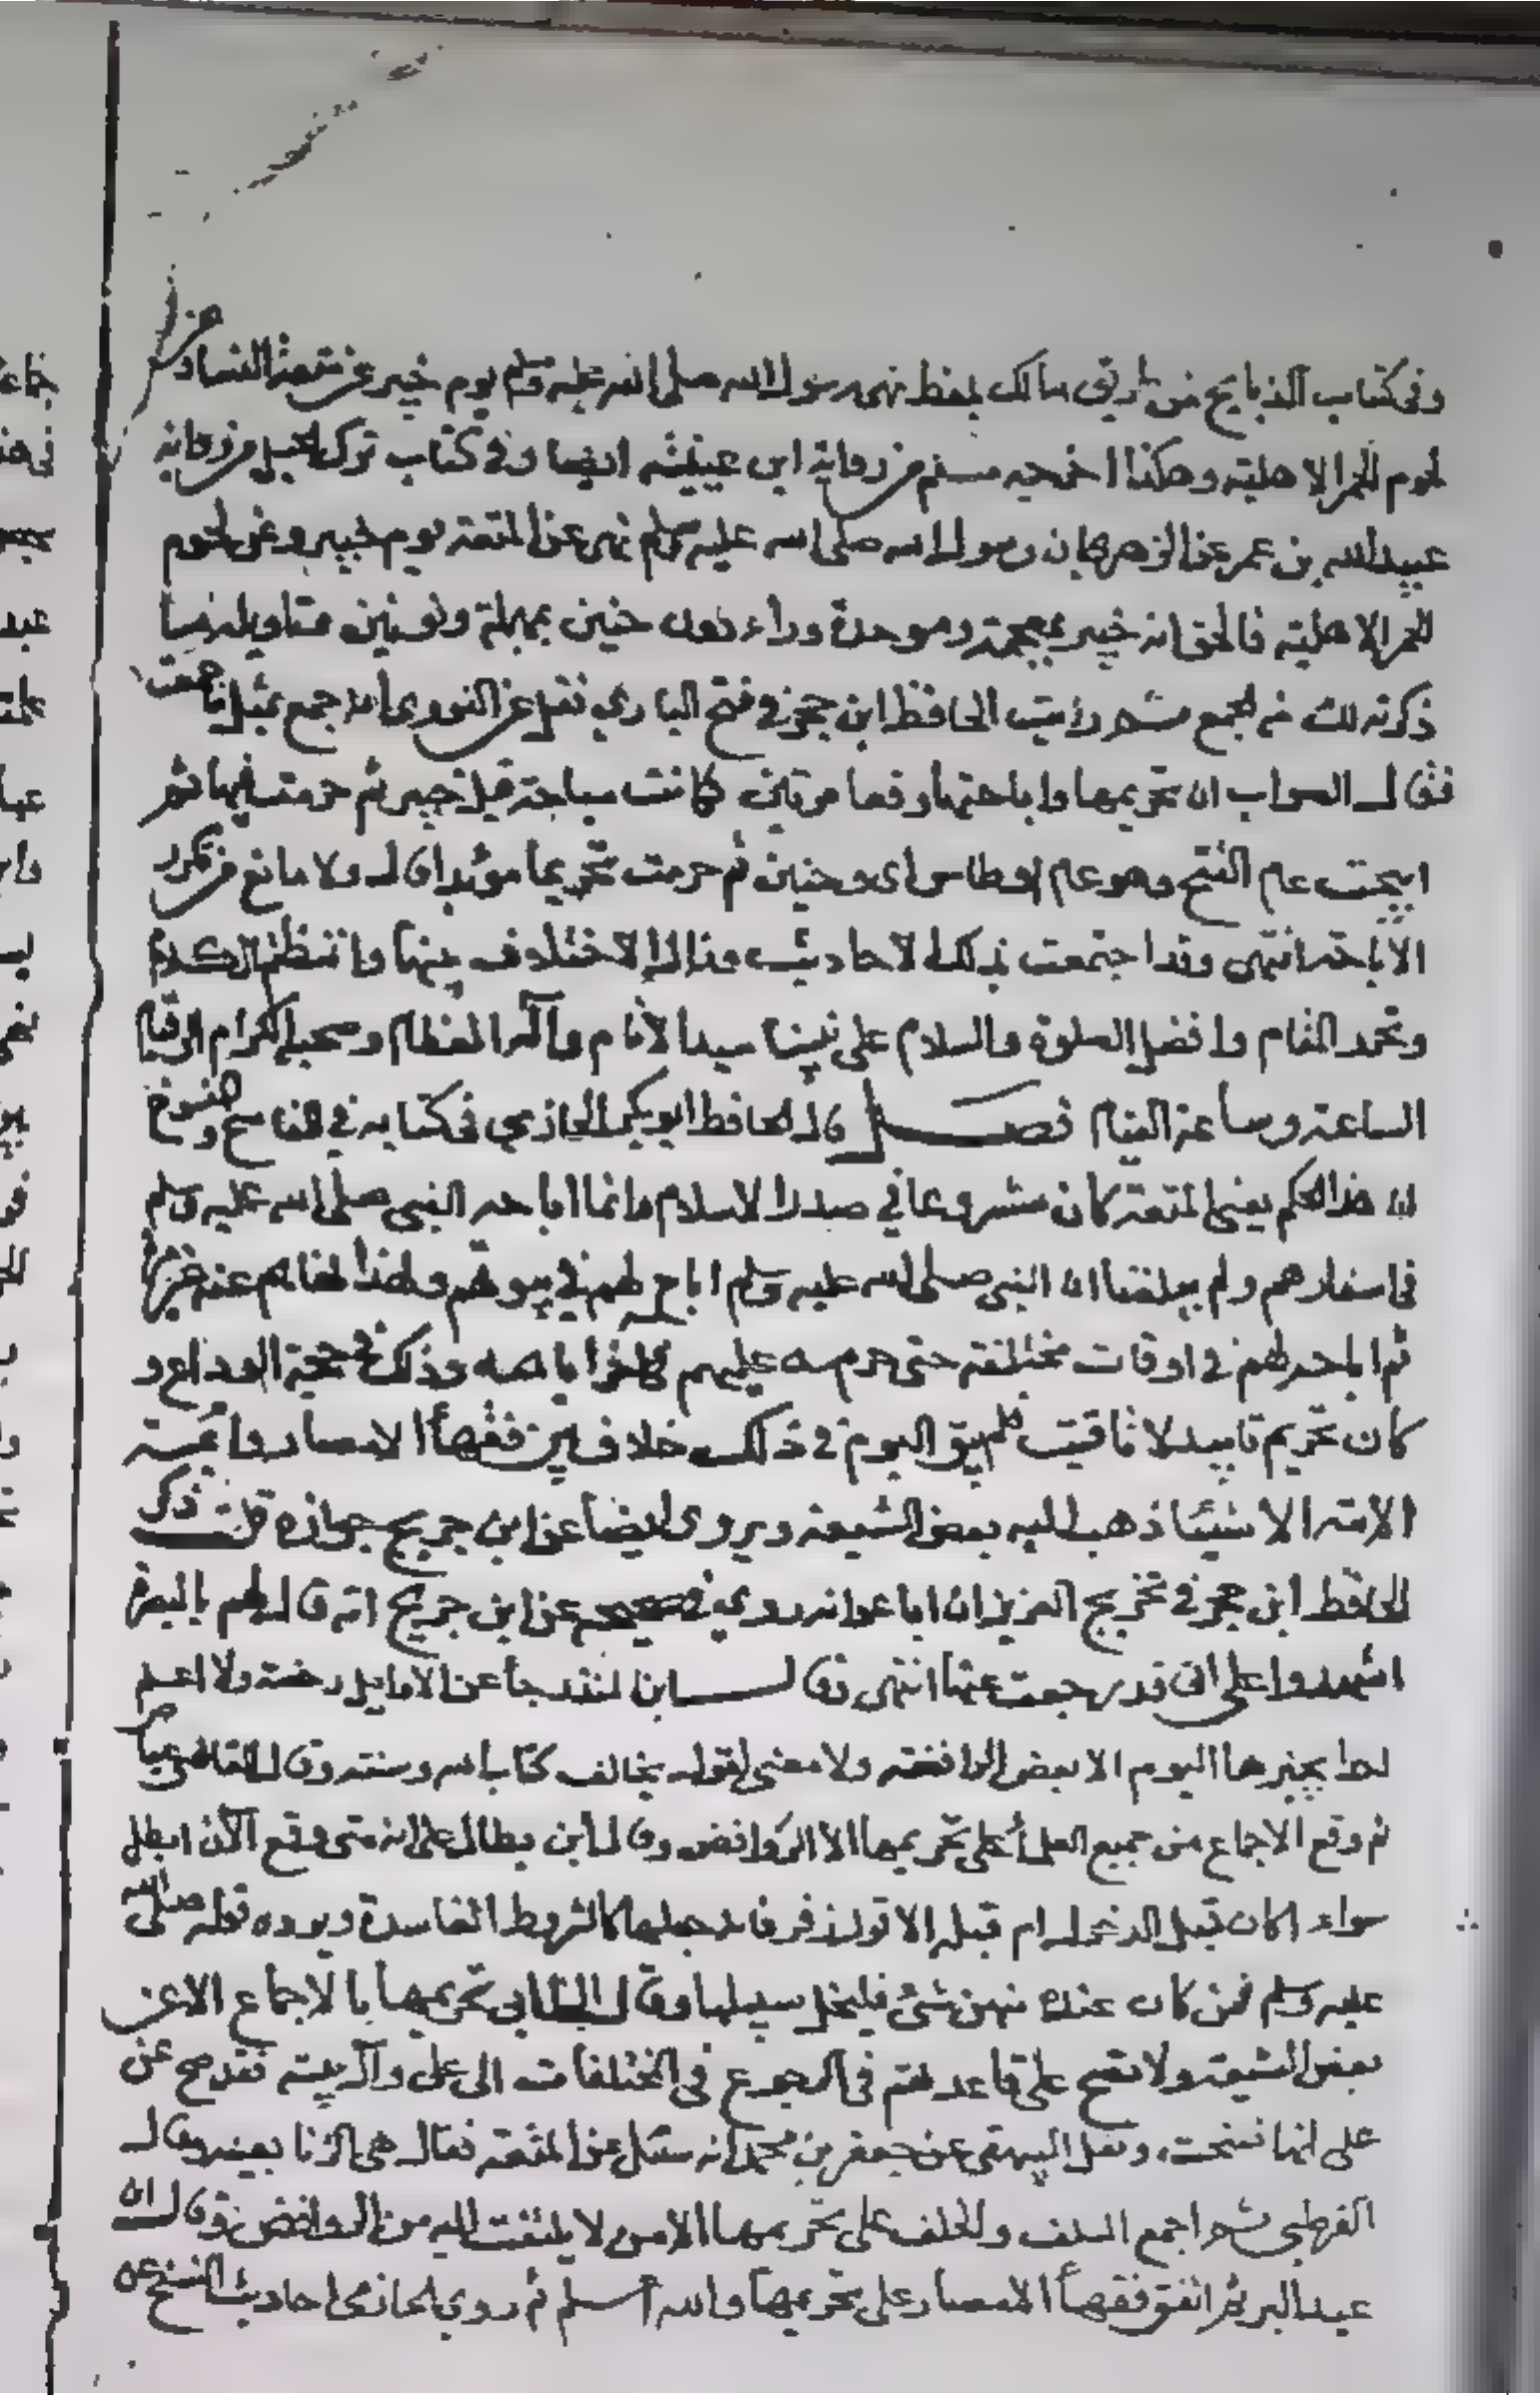 وفى كتاب الذبايح من طريق مالك بلفظ نهى رسول الله صلى الله عليه وسلم يوم خيبر عن متعة النساء وعن
لحوم الحمر الاهلية وهكذا اخرجه مسلم من رواية ابن عيينة ايضا وفى كتاب ترك الحيل من رواية
عبيد الله بن عمر عن الزهرى ان رسول الله صلى الله عليه وسلم نهى عن المتعة يوم خيبر وعن لحوم
الحمر الاهلية فالحق انه خيبر بمعجمة وموحدة وراء دون حنين بمهملة ونونين
ذكرته لك من الجمع ثم رايت الحافظ ابن حجر فى فتح البارى نقل عن النووى انه جمع بمثل ما جمعت
فقال الصواب ان تحريمها واباحتها وقعا مرتين كانت مباحة قبل خيبر ثم حرمت فيها ثم
ابيحت عام الفتح وهو عام اوطاس اى وحنين ثم حرمت تحريما مؤبدا قال ولا مانع من تكرر
الاباحة انتهى وقد اجتمعت بذلك الاحاديث وزال الاختلاف بينها وانتظم الكلام
وتحمد المقام وافضل الصلوة والسلام على نبينا سيد الانام وآله العظام وصحبه الكرام الى قيام
الساعة وساعة القيام فصل قال الحافظ ابو بكر الحازمى فى كتابه فى الناسخ والمنسوخ
ان هذا الحكم يعنى المتعة كان مشروعا فى صدر الاسلام وانما اباحه النبى صلى الله عليه وسلم
فى اسفارهم ولم يبلغنا ان النبى صلى الله عليه وسلم اباح لهم فى بيوتهم ولهذا نهاهم عنه غير مرة
ثم اباحه لهم فى اوقات مختلفة حتى حرمه عليهم فى اخر ايامه وذلك فى حجة الوداع و
كان تحريم تابيد لا تاقيت فلم يبق اليوم فى ذلك خلاف بين فقهاء الامصار وائمة
الامة الا شيئا ذهب اليه بعض الشيعة ويروى ايضا عن ابن جريج جوازه قلت ذكر
الحافظ ابن حجر فى تخريج العزيز ان ابا عوانه روى فى صحيحه عن ابن جريج انه قال لهم بالبصرة
اشهدوا على انى قد رجعت عنها انتهى وقال ابن المنذر جاء عن الاوايل رخصة ولا اعلم
احدا يجيزها اليوم الا بعض الرافضة ولا معنى لقول يخالف كتاب الله وسنته وقال القاضى عياض
ثم وقع الاجماع من جميع العلماء على تحريمها الا الروافض وقال ابن بطال على انه متى وقع الآن ابطل
سواء اكان قبل الدخول ام قبله الا قول زفر فانه جعلها كالشروط الفاسدة ويرده قوله صلى الله
عليه وسلم فمن كان عنده منهن شئ فليخل سبيلها وقال الخطابى تحريمها بالاجماع الا عن
بعض الشيعة ولا تصح على قاعدتهم فى الرجوع فى المختلفات الى على وآل بيته فقد صح عن
على انها نسخت ونقل البيهقى عن جعفر بن محمد انه سئل عن المتعة فقال هى الزنا بعينه وقال
القرطبى ثم اجمع السلف والخلف على تحريمها الا من لا يلتفت اليه من الروافض وقال ابن
عبد البر ثم اتفق فقهاء الامصار على تحريمها والله اسلم ثم روى الحازمى احاديث النسخ عن